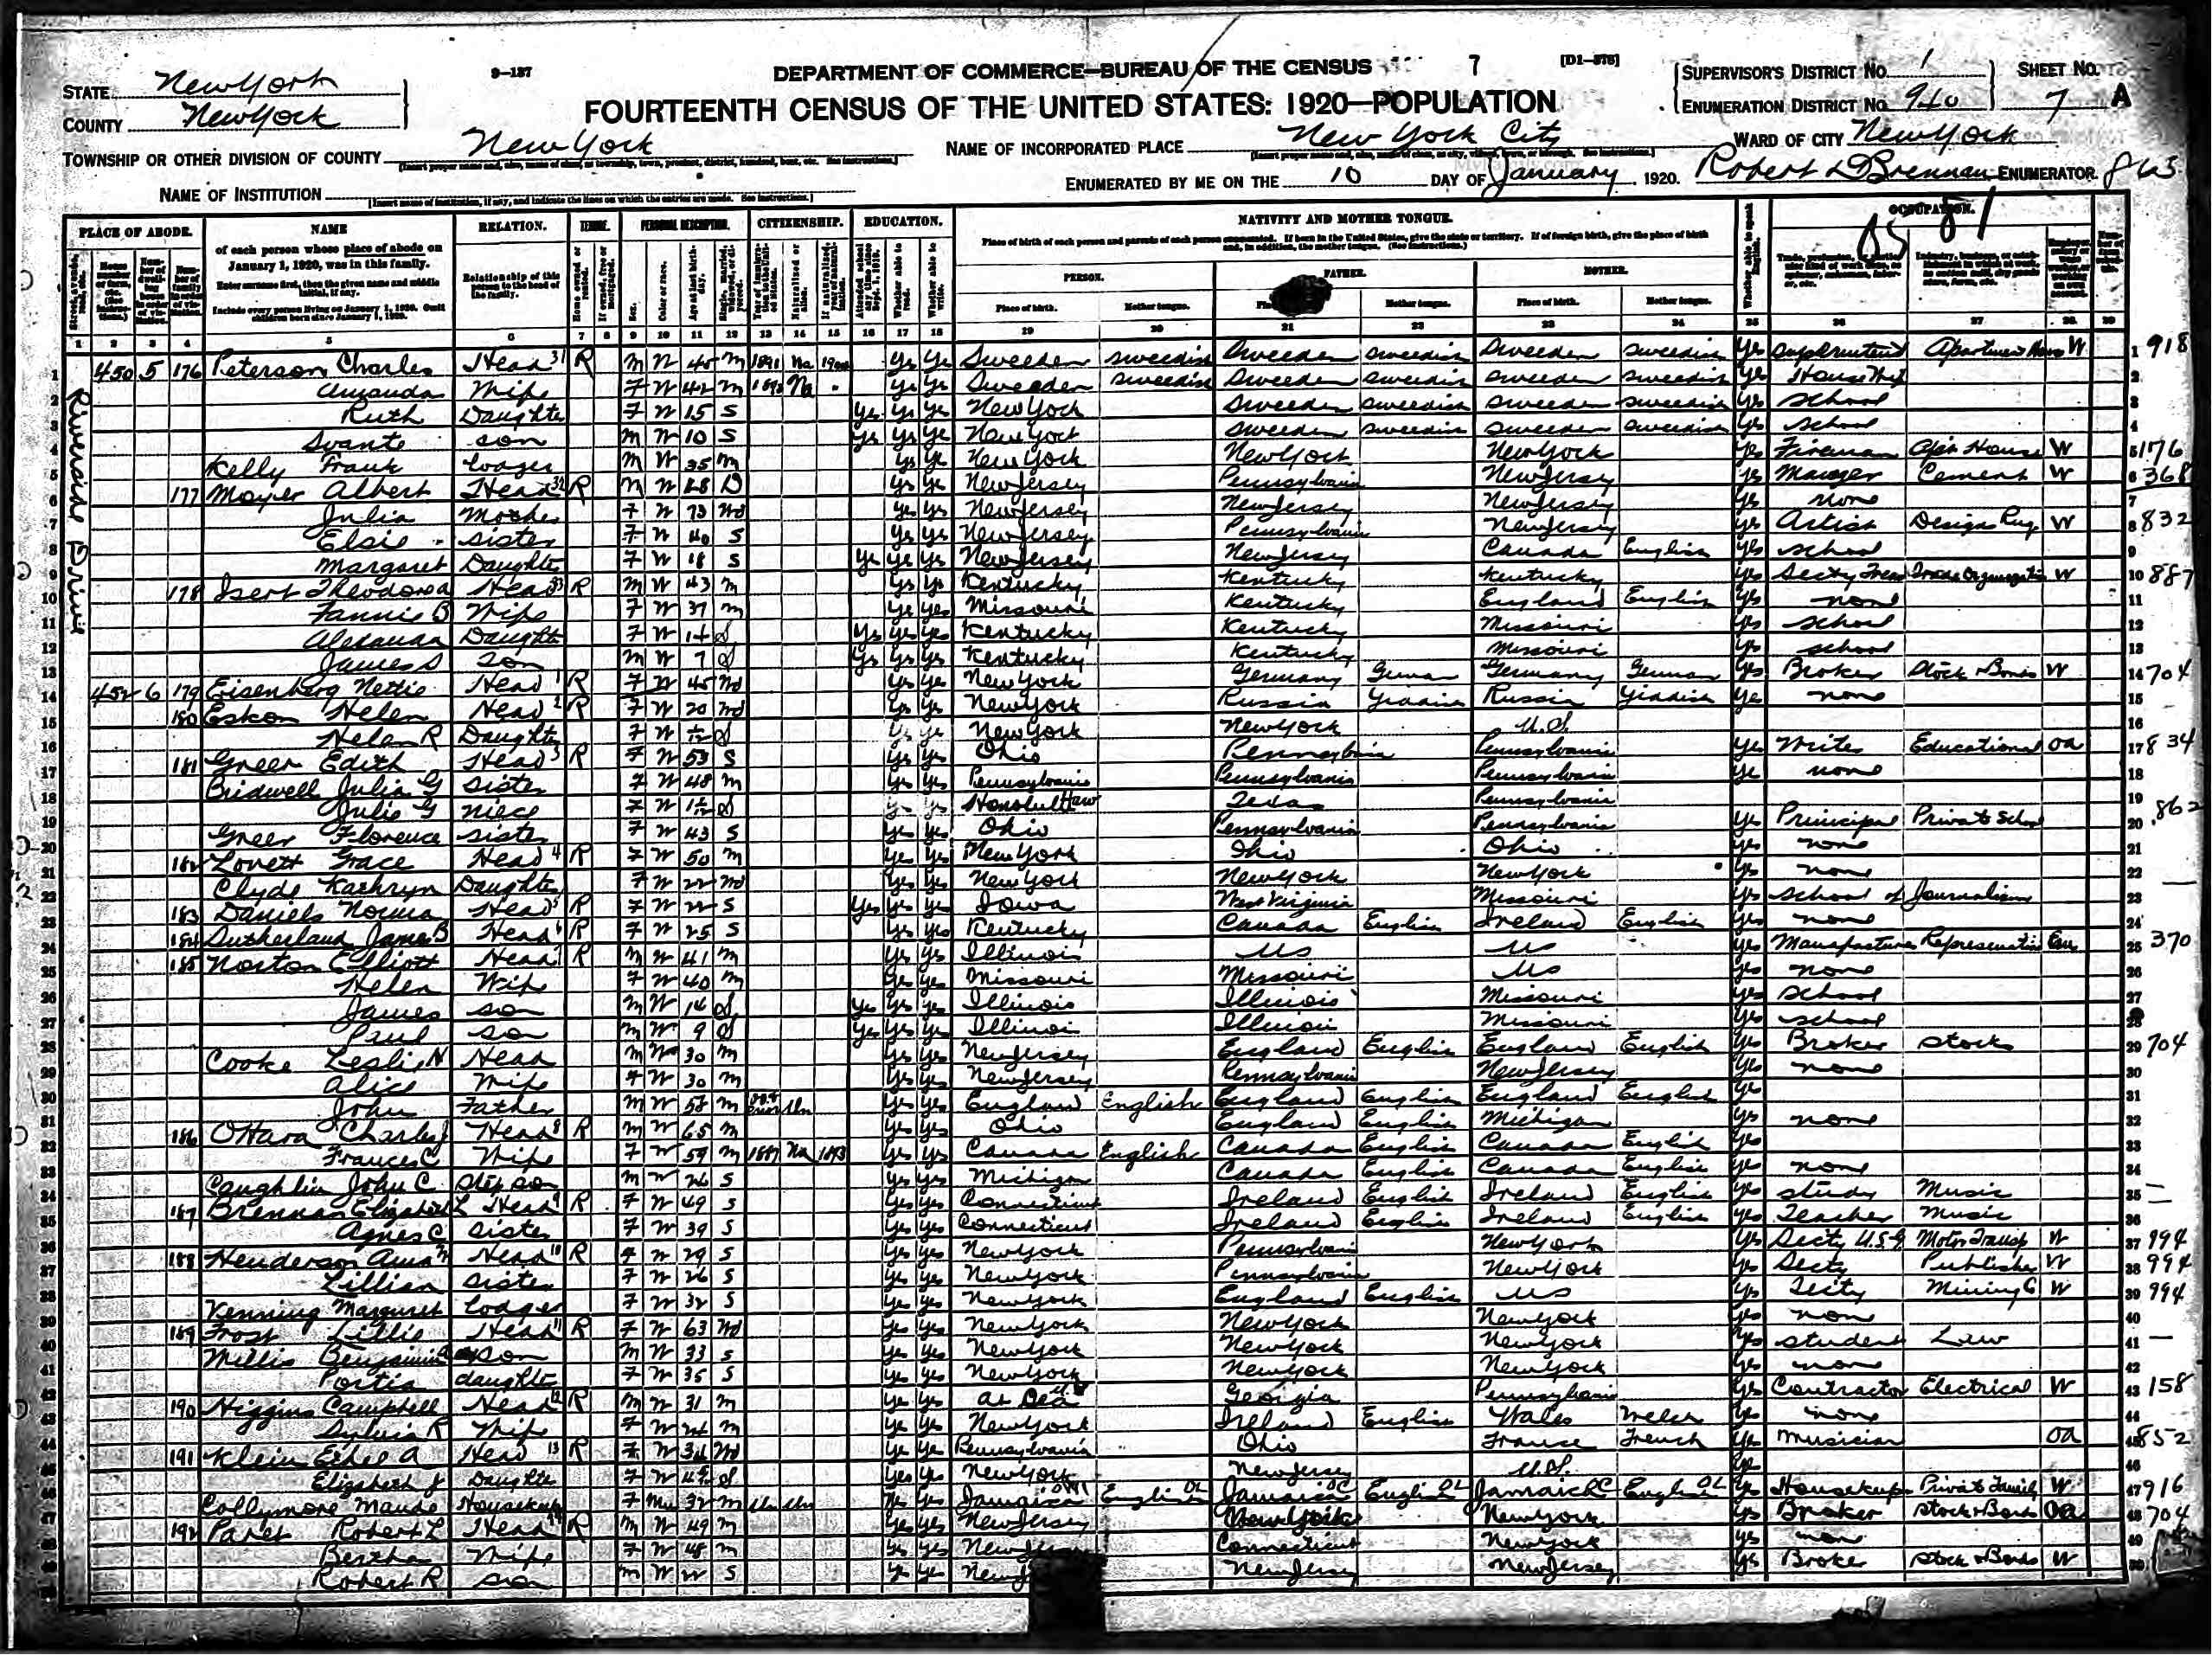 9—137
DEPARTMENT OF COMMERCE—BUREAU OF THE CENSUS
7
[D1—578]
STATE New York
COUNTY New York
FOURTEENTH CENSUS OF THE UNITED STATES: 1920—POPULATION
SUPERVISOR'S DISTRICT No. 1
ENUMERATION DISTRICT No. 940
SHEET No. 7 A
TOWNSHIP OR OTHER DIVISION OF COUNTY New York
NAME OF INCORPORATED PLACE New York City
WARD OF CITY New York
NAME OF INSTITUTION
[Insert name of institution, if any, and indicate the lines on which the entries are made. See instructions.]
ENUMERATED BY ME ON THE 10 DAY OF January, 1920. Robert Brennan ENUMERATOR.
PLACE OF ABODE. NAME RELATION. TENURE. PERSONAL DESCRIPTION. CITIZENSHIP. EDUCATION. NATIVITY AND MOTHER TONGUE. OCCUPATION.
of each person whose place of abode on January 1, 1920, was in this family.
Enter surname first, then the given name and middle initial, if any.
Include every person living on January 1, 1920. Omit children born since January 1, 1920.
Relationship of this person to the head of the family.
PERSON. FATHER. MOTHER.
Place of birth. Mother tongue. Place of birth. Mother tongue.
Riverside Drive
1 450 5 176 Peterson Charles Head R M W 45 M 1891 Na 1900 Yes Yes Sweeden Sweedish Sweeden Sweedish Sweeden Sweedish Yes Apartment W 918
2 Amanda Wife F W 42 M Na Yes Yes Sweeden Sweedish Sweeden Sweedish Sweeden Sweedish Yes
3 Ruth Daughter F W 15 S Yes Yes Yes New York Sweeden Sweedish Sweeden Sweedish Yes School
4 Svante Son M W 10 S Yes Yes Yes New York Sweeden Sweedish Sweeden Sweedish Yes School
5 Kelly Frank Lodger M W 35 M Yes Yes New York New York New York Yes Fireman House W 176
6 177 Mayer Albert Head R M W 48 D Yes Yes New Jersey Pennsylvania New Jersey Yes Manager Cement W 368
7 Julia Mother F W 73 Wd Yes Yes New Jersey New Jersey New Jersey Yes none
8 Elsie Sister F W 40 S Yes Yes New Jersey Pennsylvania New Jersey Yes Artist Designs Rug W 832
9 Margaret Daughter F W 18 S Yes Yes Yes New Jersey New Jersey Canada English Yes School
10 178 Isert Head R M W 43 M Yes Yes Kentucky Kentucky Kentucky Yes Secty W 887
11 Fannie B Wife F W 37 M Yes Yes Missouri Kentucky England English Yes none
12 Daughter F W 14 S Yes Yes Yes Kentucky Kentucky Missouri Yes School
13 James S Son M W 7 S Yes Yes Yes Kentucky Kentucky Missouri Yes School
14 452 6 179 Eisenberg Nettie Head R F W 45 Wd Yes Yes New York Germany German Germany German Yes Broker Stock & Bonds W 704
15 180 Eskon Helen Head R F W 20 Wd Yes Yes New York Russia Yiddish Russia Yiddish Yes none
16 Helen R Daughter F W S New York New York U.S.
17 181 Greer Edith Head R F W 53 S Yes Yes Ohio Pennsylvania Pennsylvania Yes Writer Educational OA 834
18 Bridwell Julia G Sister F W 48 M Yes Yes Pennsylvania Pennsylvania Pennsylvania Yes none
19 Julie G Niece F W S Honolulu Haw Texas Pennsylvania
20 Greer Florence Sister F W 43 S Yes Yes Ohio Pennsylvania Pennsylvania Yes Principal Private School 862
21 182 Lovett Grace Head R F W 50 M Yes Yes New York Ohio Ohio Yes none
22 Clyde Kathryn Daughter F W 22 Wd Yes Yes New York New York New York Yes none
23 183 Daniels Norma Head R F W 22 S Yes Yes Yes Iowa West Virginia Missouri Yes School of Journalism
24 184 Sutherland Jane B Head R F W 25 S Yes Yes Kentucky Canada English Ireland English Yes none
25 185 Norton Elliott Head R M W 41 M Yes Yes Illinois US US Yes Manufacturer Representative 370
26 Helen Wife F W 40 M Yes Yes Missouri Missouri US Yes none
27 James Son M W 14 S Yes Yes Yes Illinois Illinois Missouri Yes School
28 Paul Son M W 9 S Yes Yes Yes Illinois Illinois Missouri Yes School
29 Cooke Leslie H Head M W 30 M Yes Yes New Jersey England English England English Yes Broker Stocks 704
30 Alice Wife F W 30 M Yes Yes New Jersey Pennsylvania New Jersey Yes none
31 John Father M W M Un Yes Yes England English England English England English Yes
32 186 OHara Charles J Head R M W 65 M Yes Yes Ohio England English Michigan Yes none
33 Frances C Wife F W 59 M 1887 Na 1893 Yes Yes Canada English Canada English Canada English Yes
34 Caughlin John C Step son M W 26 S Yes Yes Michigan Canada English Canada English Yes none
35 187 Brennan Elizabeth L Head R F W 49 S Yes Yes Connecticut Ireland English Ireland English Yes Study Music
36 Agnes C Sister F W 39 S Yes Yes Connecticut Ireland English Ireland English Yes Teacher Music
37 188 Henderson Anna M Head R F W 29 S Yes Yes New York Pennsylvania New York Yes Secty U.S.G Motor Transp W 994
38 Lillian Sister F W 26 S Yes Yes New York Pennsylvania New York Yes Secty Publisher W 994
39 Kenning Margaret Lodger F W 32 S Yes Yes New York England English US Yes Secty Mining C W 994
40 189 Frost Lillie Head R F W 63 Wd Yes Yes New York New York New York Yes none
41 Willis Benjamin Son M W 33 S Yes Yes New York New York New York Yes Student Law
42 Portia daughter F W 35 S Yes Yes New York New York New York Yes none
43 190 Higgins Campbell Head R M W 31 M Yes Yes At Sea Georgia Pennsylvania Yes Contractor Electrical W 158
44 Sylvia R Wife F W 24 M Yes Yes New York Ireland English Wales Welsh Yes none
45 191 Klein Ethel A Head R F W 34 Wd Yes Yes Pennsylvania Ohio France French Yes Musician OA 852
46 Elizabeth J Daughter F W S Yes Yes New York New Jersey U.S. Yes
47 Collymore Maude Housekeeper F Mu 32 M Un Un Yes Yes Jamaica English Jamaica English Jamaica English Yes Housekeeper Private Family W 916
48 192 Paret Robert L Head R M W 49 M Yes Yes New Jersey New York New York Yes Broker Stock & Bonds OA 704
49 Bertha Wife F W 48 M Yes Yes New Jersey Connecticut New York Yes none
50 Robert R Son M W 22 S Yes Yes New J New Jersey New Jersey Yes Broker Stock & Bonds W